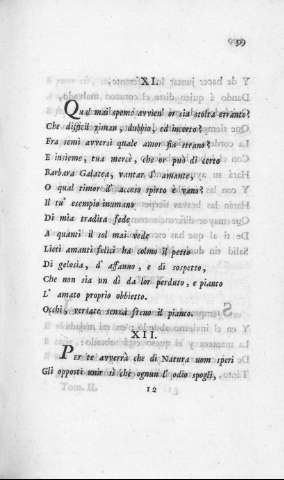 XI.
Qual mai speme avvien' or sia stolta errante?
Che difficil riman, dubbio, ed incerto?
Fra semi avversi quale amor fia strano?
E insieme, tua mercè, che or può di certo
Barbara Galatea, vantar l' amante,
O qual timor d' acceso spirto è vano?
Il tu' esempio inumano
Di mia tradita fede
A quanti il sol mai vede
Lieti amanti felici ha colmo il petto
Di gelosia, d' affanno, e di sospetto,
Che non sia un dì da lor perduto, e pianto
L' amato proprio obbietto.
Occhi, versate senza freno il pianto.
XII
Per te avverrà che di Natura uom speri
Gli opposti unir sì che ognun l' odio spogli,
12